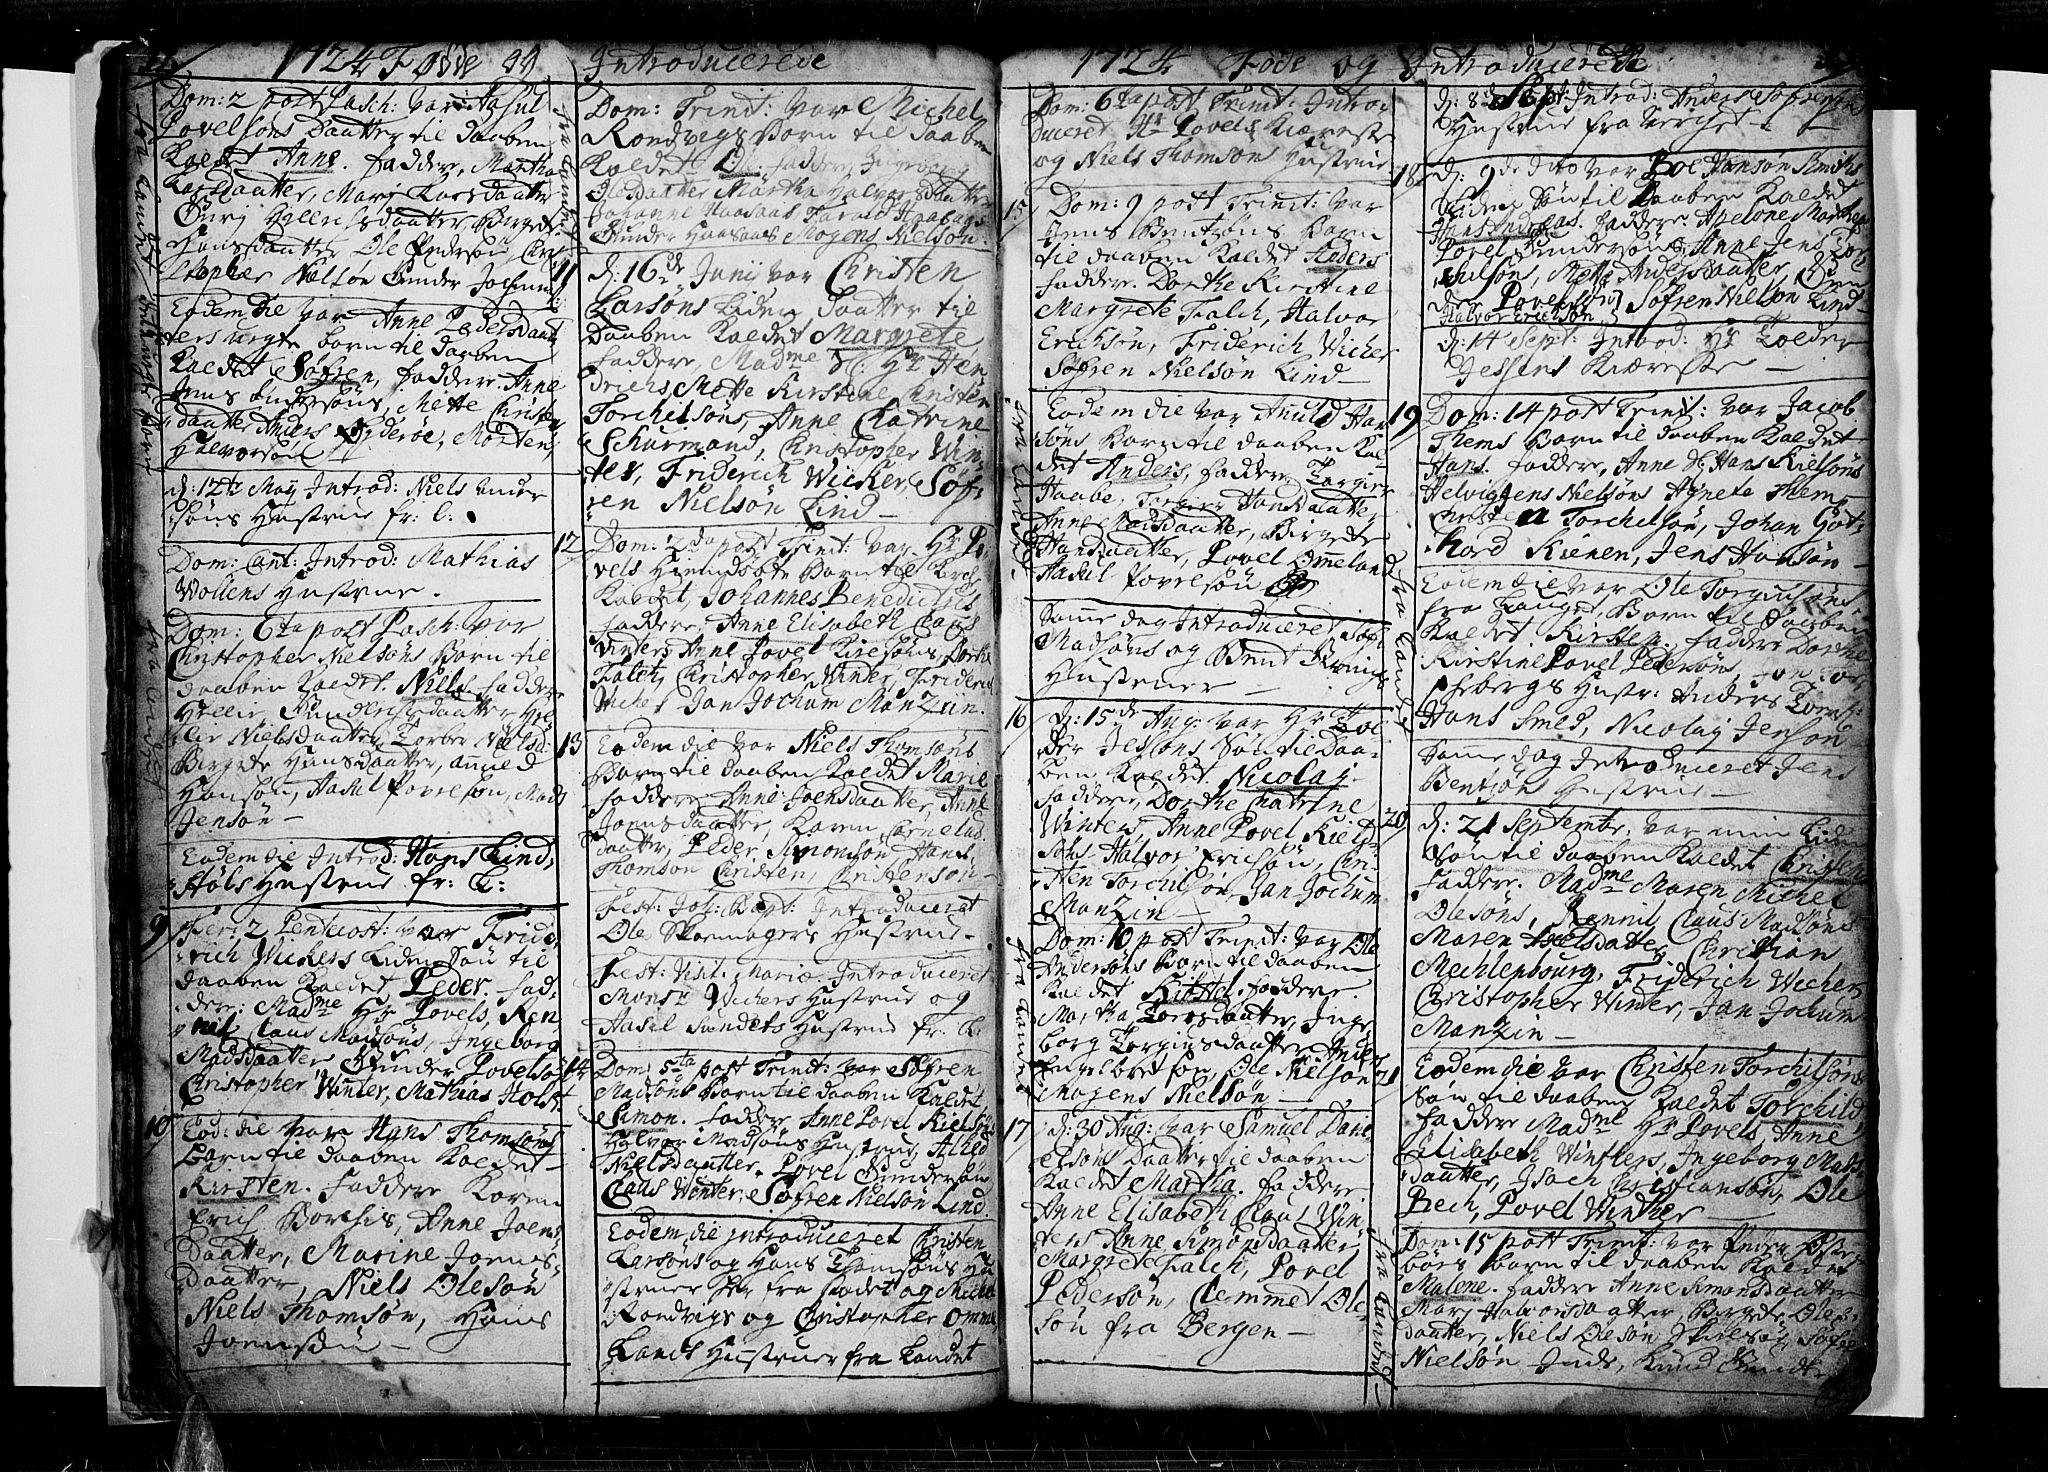 1724 Føde og Introducerede
Dom: 2 post Pasch: var Aasul
Povelsøns Daatter til daaben
Kaldet Anne. faddere, Martha
Larsdaatter, Mari Larsdaatter
Hansdaatter Ole Pedersøn, Chri
stopher Nielsøn Gunder Jochum
Eodem die var Anne Pedersdaat
ters uegte børn til daaben
Kaldet Søfren, faddere. Anne
Jens Andersøns, Mette Christen
daatter Anders Hyderøe, Morten
Halvorsøn
fra Landet
d: 12te Maij Introd: Niels Ander
søns Hustrue fr: L:
Dom: Cant: Introd: Mathias
Wollens Hustrue.
Dom: 6ta post Pasch: var
Christopher Nielsøns Børn til
daaben Kaldet. Niels. faddere
lie Nielsdaatter, Torber Nielsd:
Birgete Hansdaatter, Anued
Hansøn, Aasul Povelsøn, Mads
Jensøn -
fra Landet
Eodem die Introd: Hans Lind,
støls Hustrue fr: L:
9 Fer: 2 Pentecost: var Fride,
rich Wickers Liden Søn til
daaben Kaldet Peder. fad,
dere: Madme Hr Povels, Ren
nil, Claus Madsøns, Ingeborg
Madsdaatter, Gunder Povelsøn
Christopher Winter, Mathias Holst
10 Eod: die var Hans Thomsøns
Barn til daaben Kaldet -
Kirsten. faddere Karen
Erich Borchis, Anne Joens
Daatter, Marine Joens-
daatter, Niels Olesøn
Niels Thomsøn, Hans
Joensøn -
Dom: Trinit: var Michel
Rondvigs Børn til daaben
Kaldet Ole. faddere, Ingeborg
Olesdaatter Martha Halvorsdaatter
Johanne Haasaas Tarald Haasaas
Gunder Haasaas Mogens Nielsøn.
fra Landet
11 d: 16de Junij var Christen
Larsøns Liden daatter til
Daaben Kaldet Margrete
faddere, Madme Sl: Hr Hen
drichs, Mette Kirstine Christen
Torchelsøns, Anne Chatrine
Schurmand, Christopher Win
ter, Friderich Wicker, Søf-
ren Nielsøn Lind -
12 Dom: 2da post Trinit: var Hr Po
vels Hiemdøbte Børn til Kirch
Kaldet, Johannes Benedictus
faddere, Anne Elisabeth Claus
Winters Anne Povel Kielsøns, Dorthe
Falch, Christopher Winter, Friderich
Wicher Jan Jochum Manzin.
13 Eodem die var Niels Thomsøns
Barn til daaben Kaldet Marie
faddere Anne Joensdaatter, Anne
Joensdaatter, Karen Cornelius
daatter, Peder Simonsøn Hans
Thomsøn Christen, Christensøn -
Fest: Joh: Bapt: Introduceret
Ole Skomagers Hustrue.
Fest: Visit. Mariæ Introduceret
Monsr Wichers Hustrue og
Aasul Sundets Hustrue fr. L:
14 Dom: 5ta post Trinit: var Søfren
Madsøns Barn til daaben Kaldet
Simon. faddere Anne Povel Kielsøns
Halvor Madsøns Hustrue, Alhed
Nielsdaatter. Povel Gundersøn
Claus Winter, Søfren Nielsøn Lind.
Eodem die introduceret Christen
Larsøns og Hans Thomsøns Hu
struer her fra stædet og Michel
Rondvigs og Christopher Omme
Lands Hustruer fra Landet
1724 Føde og Introducerede
Dom: 6ta post Trinit: Introd
duceret Hr Povels Kiæreste
og Niels Thomsøns Hustrue
15 Dom: 9 post Trinit: var
Jens Bentsøns Barn
til daaben Kaldet Peders
faddere. Dorthe Kirstine
Margrete Falch, Halvor
Erichsøn, Friderich Wicher
Søfren Nielsøn Lind -
Eodem die var Anuld Han
søns Barn til daaben Kal-
det Anders, faddere, Torgier
Haabe, Torgier Hansdaatter,
Anne Madsdaatter, Birgete
Hansdaatter, Povel Ommeland
Aasul Povelsøn
fra Landet
Samme dag Introduceret, Søfr:
Madsøns og Bent
Hustruer -
16 d: 15de Aug: var Hr Tol
der Jessens Søn til Daa-
ben Kaldet. Nicolaj -
faddere, Dorthe Chatrine
Winters, Anne Povel Kield
søns, Halvor Erichsøn, Chri
sten Torchilsøn, Jan Jochum
Manzin -
Dom: 10 post Trinit: var Ole
Andersøns Barn til daaben
Kaldet Kittel. faddere.
Martha Torsdaatter, Inge
borg Torginsdaatter, Anders
Engelbretsøn, Ole Nielsøn
Mogens Nielsøn -
fra Landet
17 d: 30 Aug: var Samuel Dani
elsøns Daatter til daaben
Kaldet Martha. faddere
Anne Elisabeth Claus Win
ters Anne Simonsdaatter,
Margrete Falch, Povel
Pedersøn, Clemmet Ole-
søn fra Bergen -
d: 8de Sept: Introd: Anders Søfrensøns
Hustrue fra Verchet -
18 d: 9de dito var Boe Hansøn Smiths
Liden Søn til Daaben Kaldet
Hans Andreas. faddere. Apelone Marthe
Povel Gundersøns, Anne Jens Tor
kilsøns, Mette Andersdaatter, Gun
der Povelsøn, Søfren Nielsøn Lind
Halvor Erichsøn.
d: 14 Sept: Introd: Hr Tolder
Jessens Kiæreste -
19 Dom: 14 post Trinit: var Jacob
Thems Børn til daaben Kaldet
Hans. faddere, Anne Sl: Hans Kielsøns
Helvig Jens Nielsøns Agnete Them
Christen Torchilsøn, Johan Got-
hard Kienen, Jens Hansøn -
Eodem die var Ole Torginsøns
Barn til Daaben
Kaldet Kirsten. faddere Dorthe
Kirstine Povel Pedersøns,
Hustr: Anders
Hans Smed, Nicolaj Jensøn
fra Landet
Samme dag Introduceret Jens
Bentsøns Hustrue -
20 d: 21 Septembr: var min Liden
Søn til daaben Kaldet Christen
faddere. Madme Maren Michel
Olesøns, Rennil Claus Madsøns
Maren Axelsdatter Christian
Mechlenbourg, Friderich Wicher
Christopher Winter, Jan Jochum
Manzin -
21 Eodem die var Christen Torchilsøns
Søn til daaben Kaldet Torchild
faddere Madme Hr Povels, Anne
Elisabeth Winthers, Ingeborg Mads
daatter, Isach Christiansøn, Ole
Bech, Povel Winther -
Dom: 15 post Trinit: var Peder
børs barn til daaben Kaldet
Malene. faddere Anne Simonsdaatter
Mari Halvorsdaatter, Birgete Oles-
daatter, Niels Olesøn
Nielsøn Jude, Knud Knudsøn
fra Landet